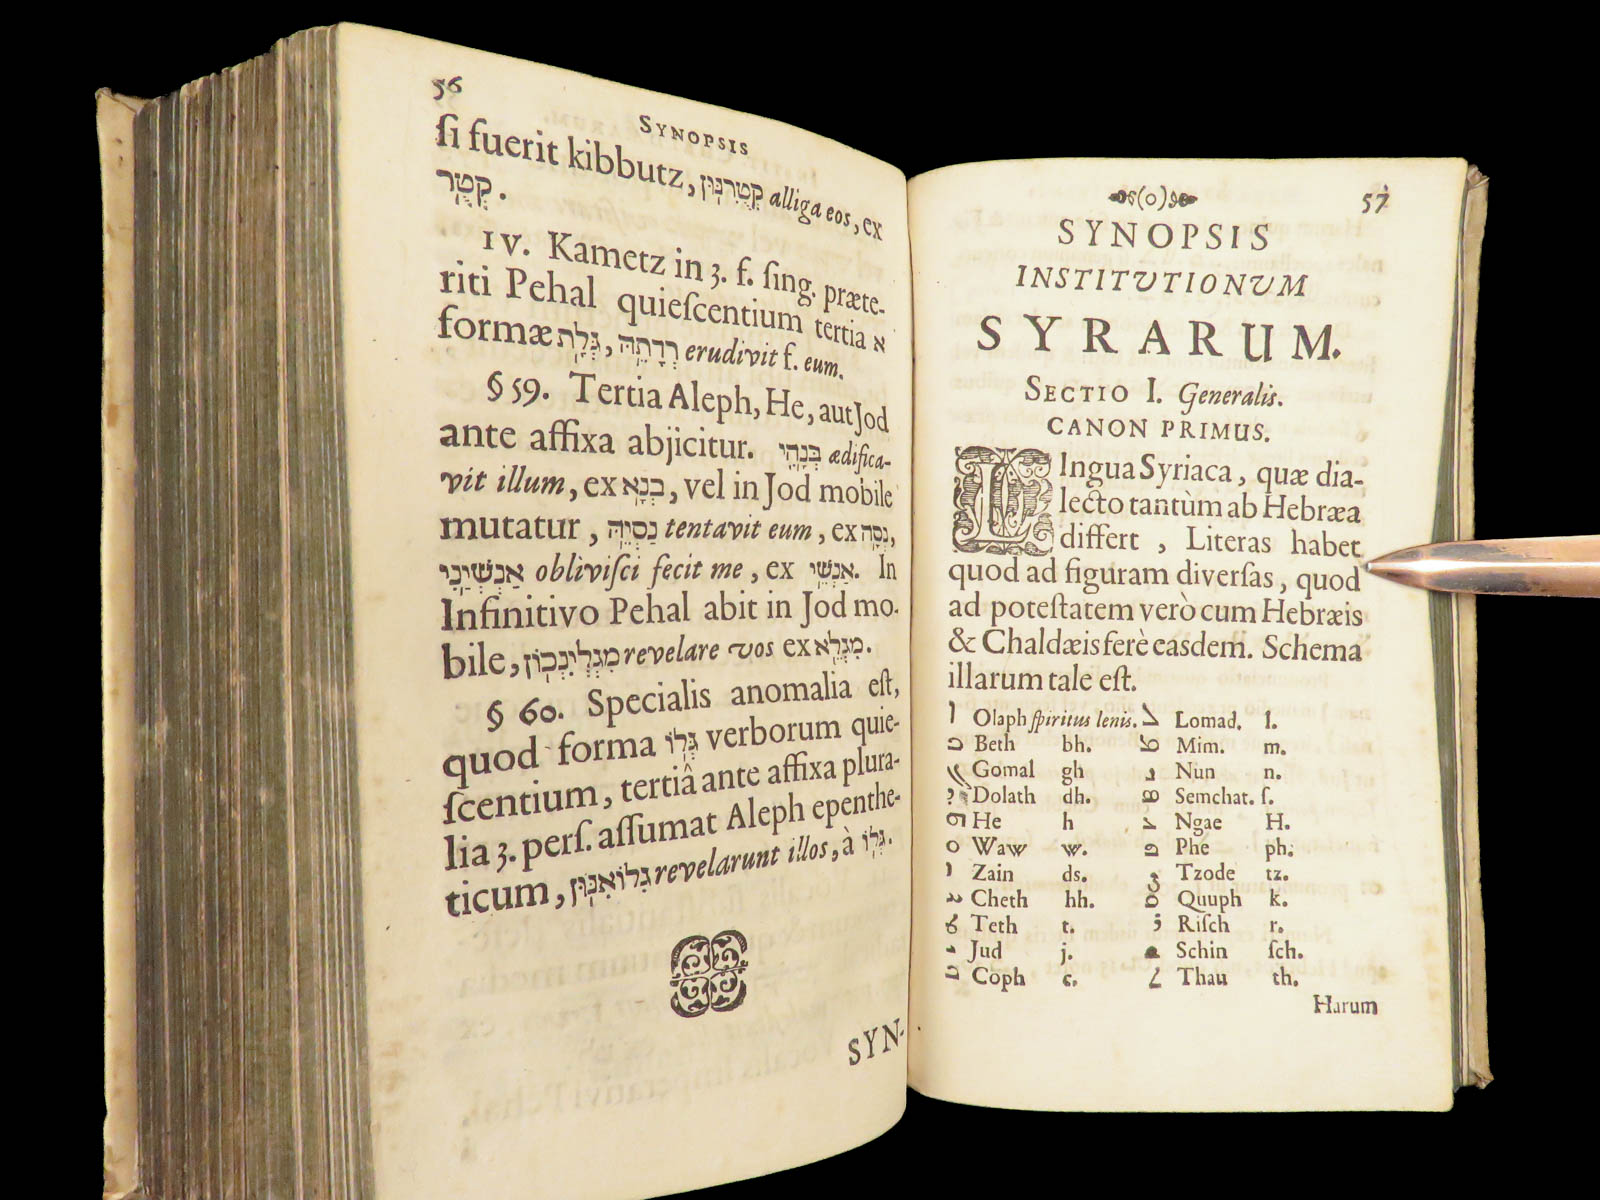 56
SYNOPSIS
si fuerit kibbutz, קֻטְרִנּוּן alliga eos, ex
קְטֻר.
IV. Kametz in 3. f. sing. præte-
riti Pehal quiescentium tertia א
formæ גְּלָת, רְדָתֵהּ erudivit f. eum.
§ 59. Tertia Aleph, He, aut Jod
ante affixa abjicitur. בְּנָהִי ædifica-
vit illum, ex בְּנָא, vel in Jod mobile
mutatur, נַסְּיֵהּ tentavit eum, ex נַסָּה,
אַנְשְׁיַנִי oblivisci fecit me, ex אַנְשִׁי. In
Infinitivo Pehal abit in Jod mo-
bile, מִגְלְיִנְכוֹן revelare vos ex מִגְלֵא.
§ 60. Specialis anomalia est,
quod forma גְּלוֹ verborum quie-
scentium, tertiâ ante affixa plura-
lia 3. pers. assumat Aleph epenthe-
ticum, גְּלוֹאִנּוּן revelarunt illos, à גְּלוֹ.
SYN-
(0)
57
SYNOPSIS
INSTITUTIONUM
SYRARUM.
SECTIO I. Generalis.
CANON PRIMUS.
LIngua Syriaca, quæ dia-
lecto tantùm ab Hebræa
differt, Literas habet
quod ad figuram diversas, quod
ad potestatem verò cum Hebræis
& Chaldæis ferè easdem. Schema
illarum tale est.
ܐ Olaph spiritus lenis. ܠ Lomad. l.
ܒ Beth bh. ܡ Mim. m.
ܓ Gomal gh ܢ Nun n.
ܕ Dolath dh. ܣ Semchat. s.
ܗ He h ܥ Ngae H.
ܘ Waw w. ܦ Phe ph.
ܙ Zain ds. ܨ Tzode tz.
ܚ Cheth hh. ܩ Quuph k.
ܛ Teth t. ܪ Risch r.
ܝ Jud j. ܫ Schin sch.
ܟ Coph c. ܬ Thau th.
Harum